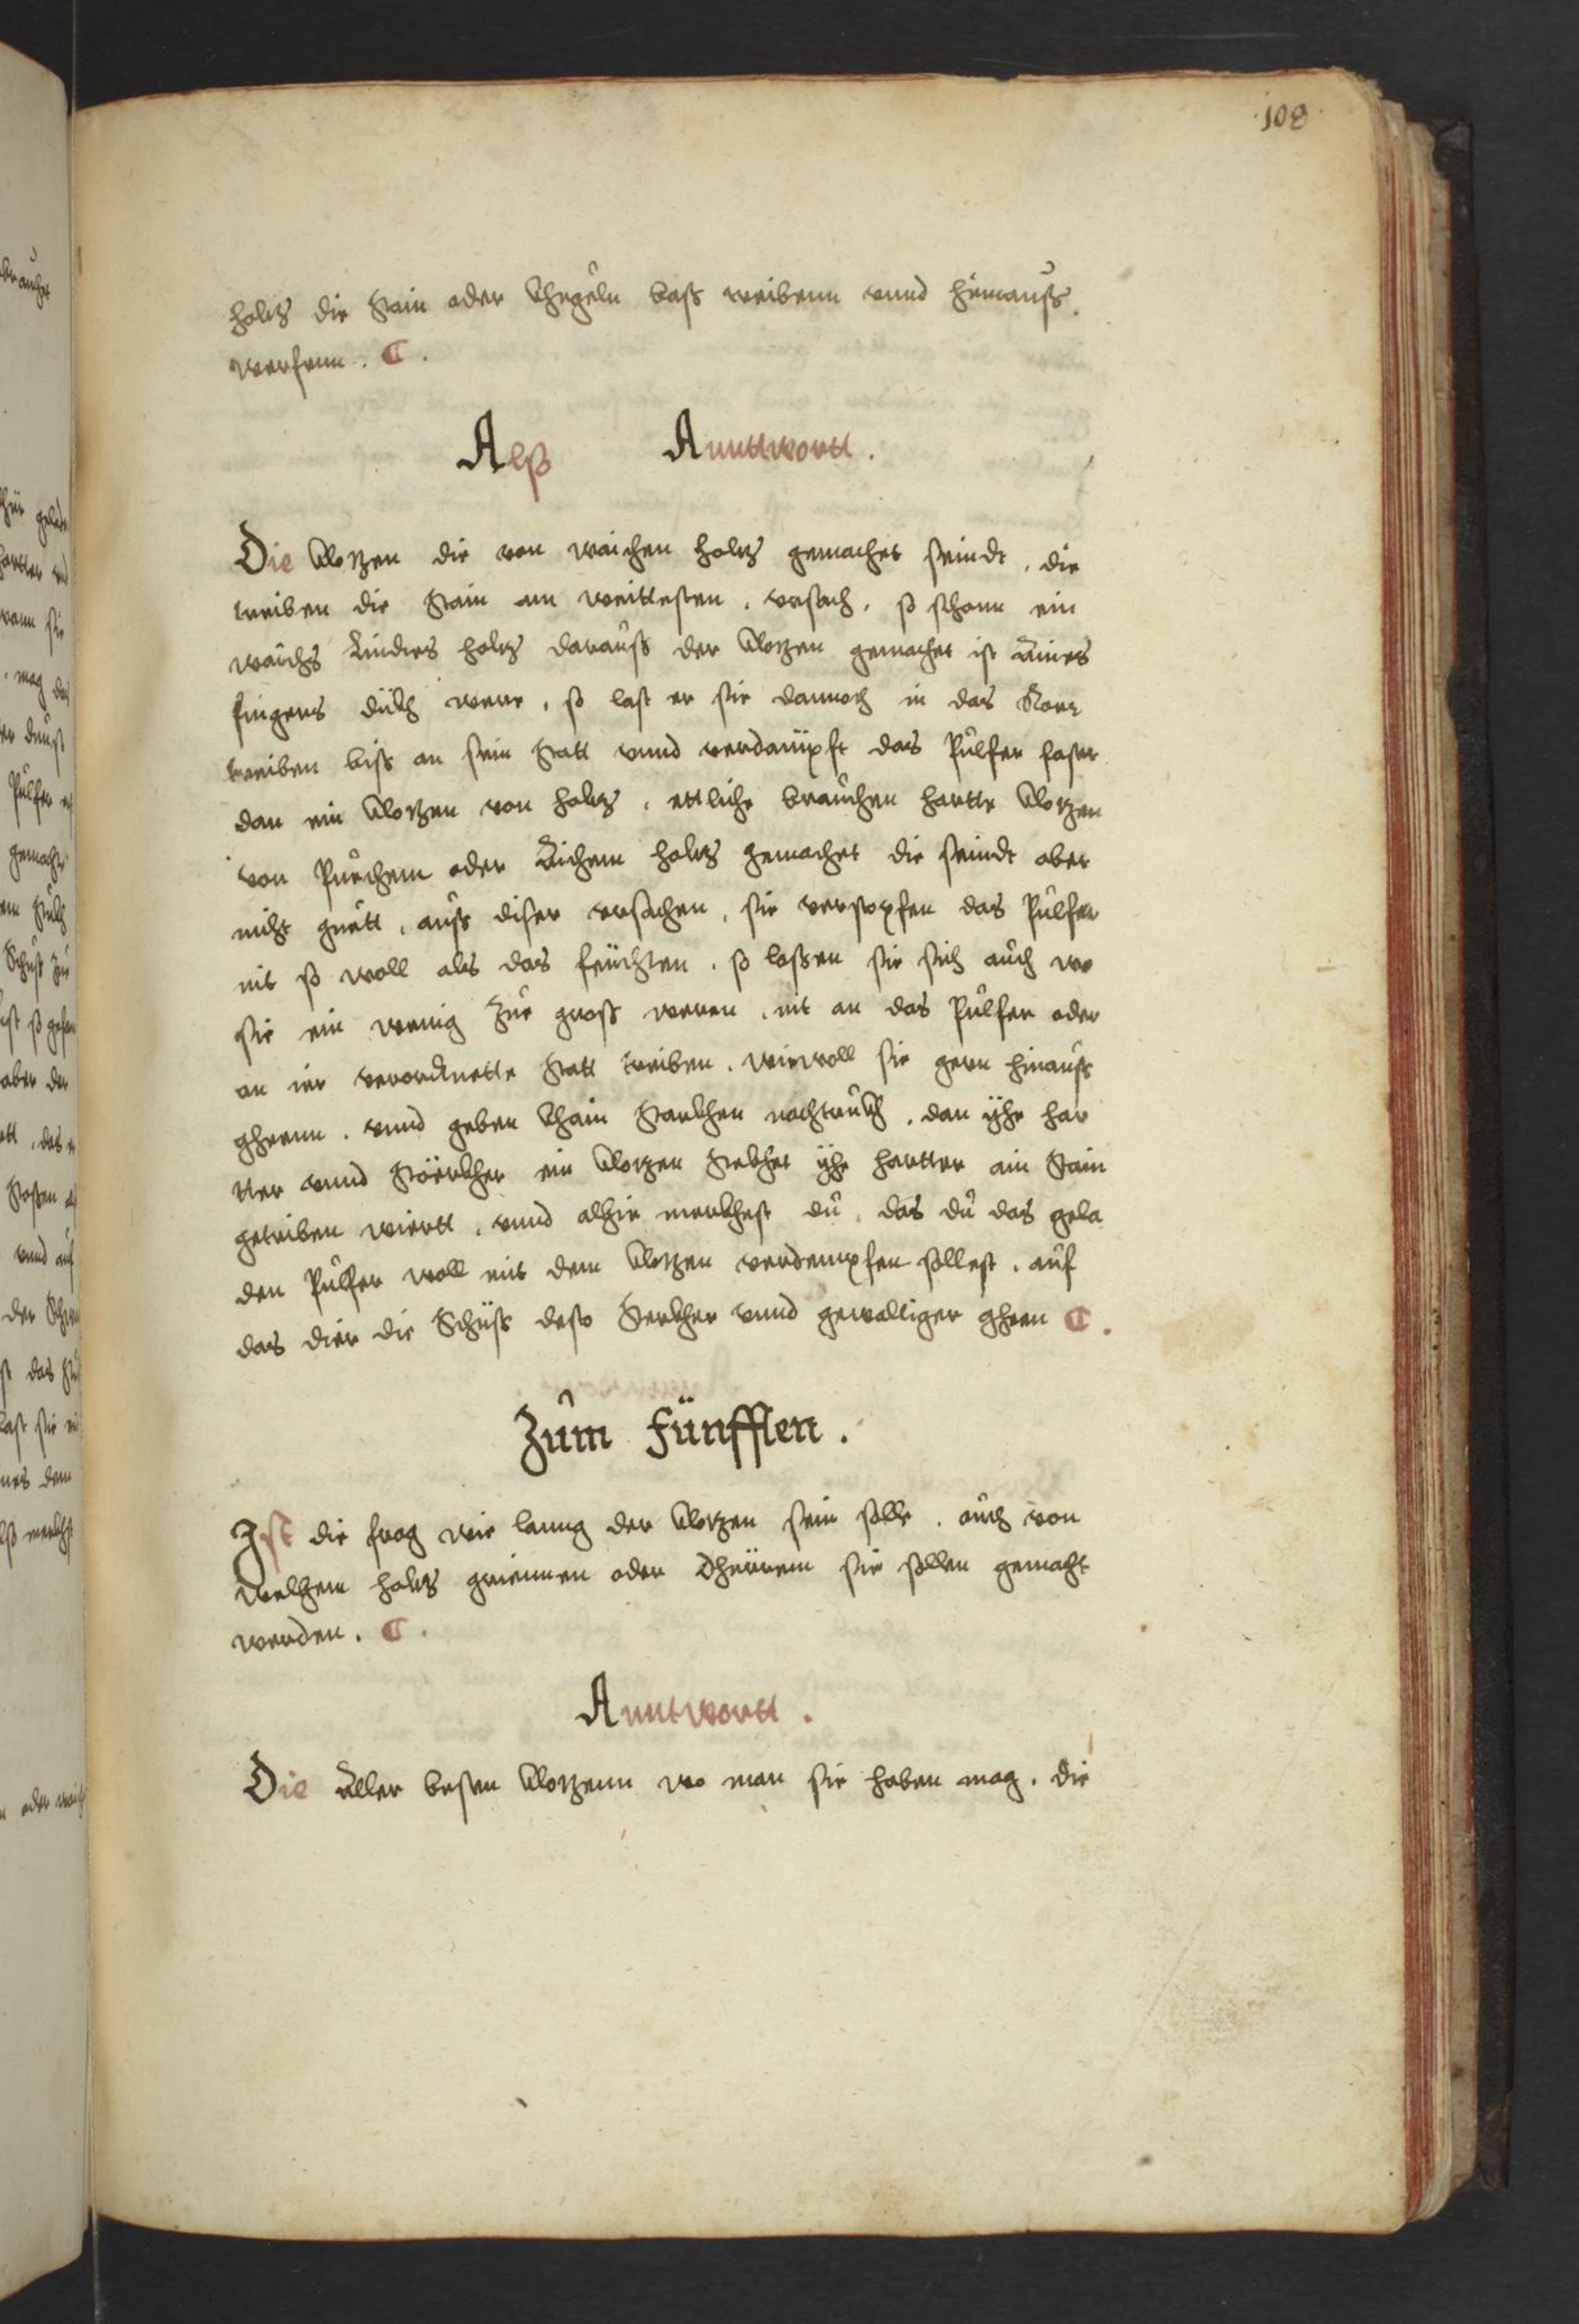 108
holtz die Stain oder Khugeln bass treibenn vnnd hinnauss
werfenn. C.
Alß Anntwortt.
Die Klotzen die von waichen holtz gemachet seindt, die
treiben die Stain am weittesten, vrsach, so schonn ein
waichs Lindes holtz darauss der Klotzen gemachet ist aines
fingers dickh were, so last er sie dannoch in das Rorr
treiben biss an sein Statt vnnd verdampft das Pulfer fester
dan ein Klotzen von holtz, ettliche brauchen hartte Klotzen
von Puechem oder Aichem holtz gemachet die seindt aber
nicht guett, auss diser vrsachen, sie verstopfen das Pulfer
nit so woll als das feuchten, so lassen sie sich auch wo
sie ein wenig zue gross weren, nit an das Pulfer oder
an ier verordnette Statt treiben, wiewoll sie gern hinauss
gheenn, vnnd geben khain Starkhen nachtrukh, dan yhe har
tter vnnd Störkher ein Klotzen Stekhet yhe hartter ain Stain
getriben wiertt, vnnd alhie merkhest du, das du das gela
den Pulfer woll mit dem Klotzen verdempfen sollest, auf
das dier die Schüss desto Sterkher vnnd gewaltiger gheen C.
Zum Fünfften.
Ist die frag wie lanng der Klotzen sein solle, auch von
welhem holtz griennen oder dhürrem sie sollen gemacht
werden. C.
Anntwortt.
Die aller besten Klotzenn wo man sie haben mag, die